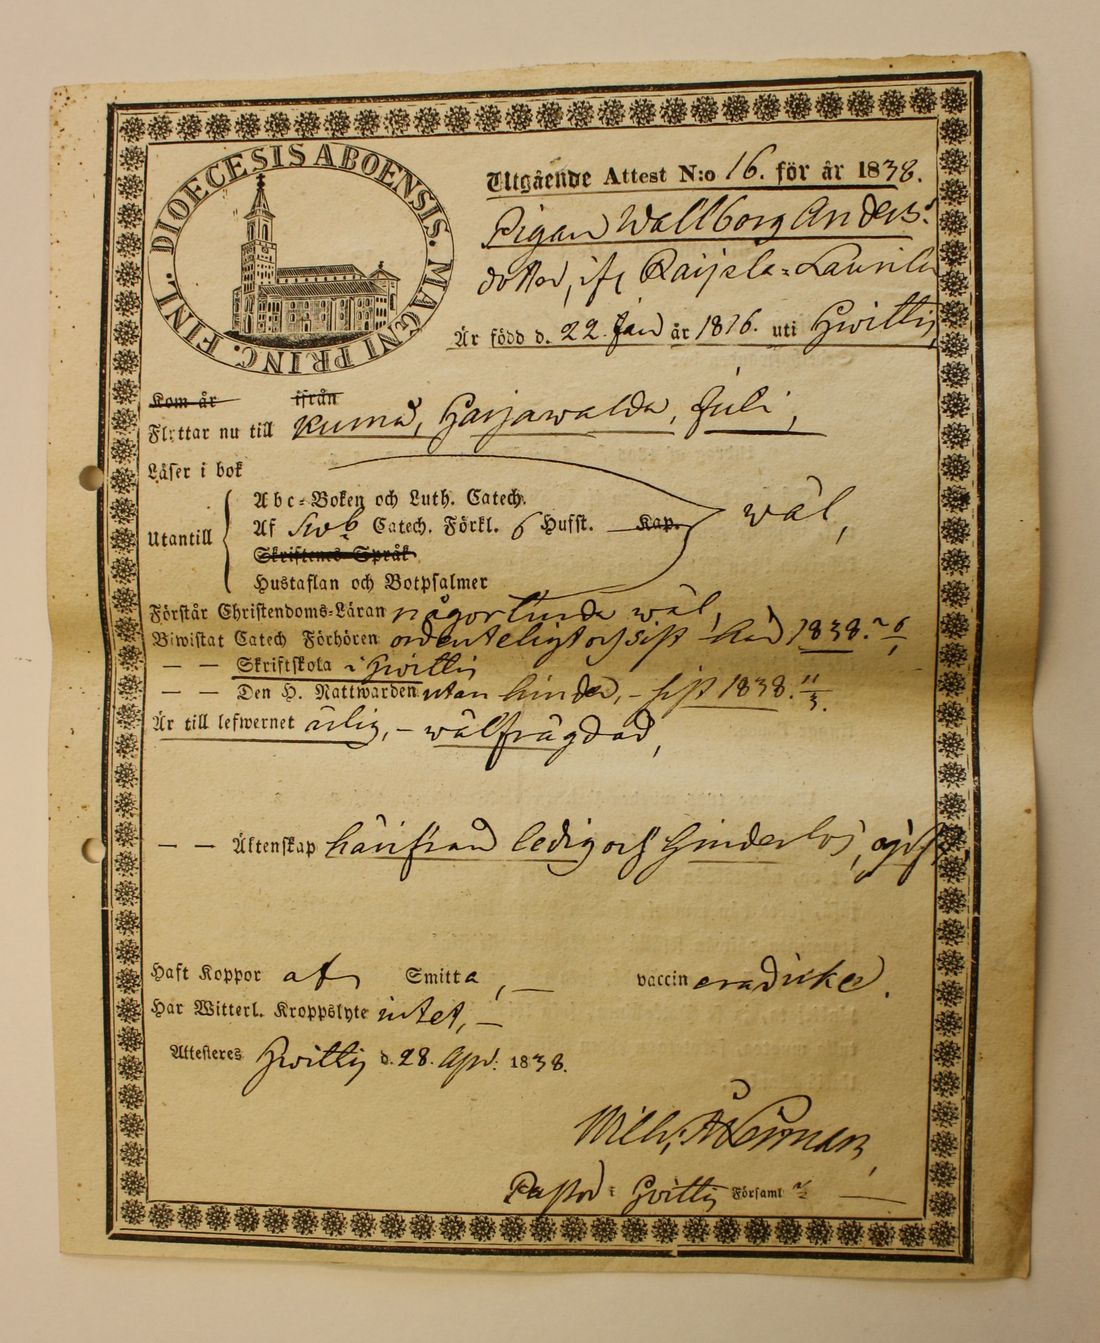 DIOECESIS ABOENSIS. MAGNI PRINC. FINL.
Utgående Attest N:o 16. för år 1838.
Pigan Wallborg Anders
dotter, ifr Raijsla-Laurila
Är född d. 22 Jan år 1816. uti Hwittis
Kom år ifrån
Flyttar nu till Kumo, Harjawalda, Juli,
Läser i bok
Abc-Boken och Luth. Catech.
Af Sweb Catech. Förkl. 6 Husst. Kap. wäl,
Utantill
Skriftenes Språk
Hustaflan och Botpsalmer
Förstår Christendoms-Läran någorlunda wäl,
Biwistat Catech Förhören ordenteligt och sist 1838.
— — Skriftskola i Hwittis
— — Den H. Nattwarden utan hinder, – sist 1838. 11/3.
Är till lefwernet ärlig, – wälfrägdad,
— — Äktenskap härifrån ledig och hinderlös,
Haft Koppor af Smitta, — vaccinerad icke.
Har Witterl. Kroppslyte intet, —
Attesteres Hwittis d. 28. Apr. 1838.
Wilh.
Pastor i Hvittis Församl